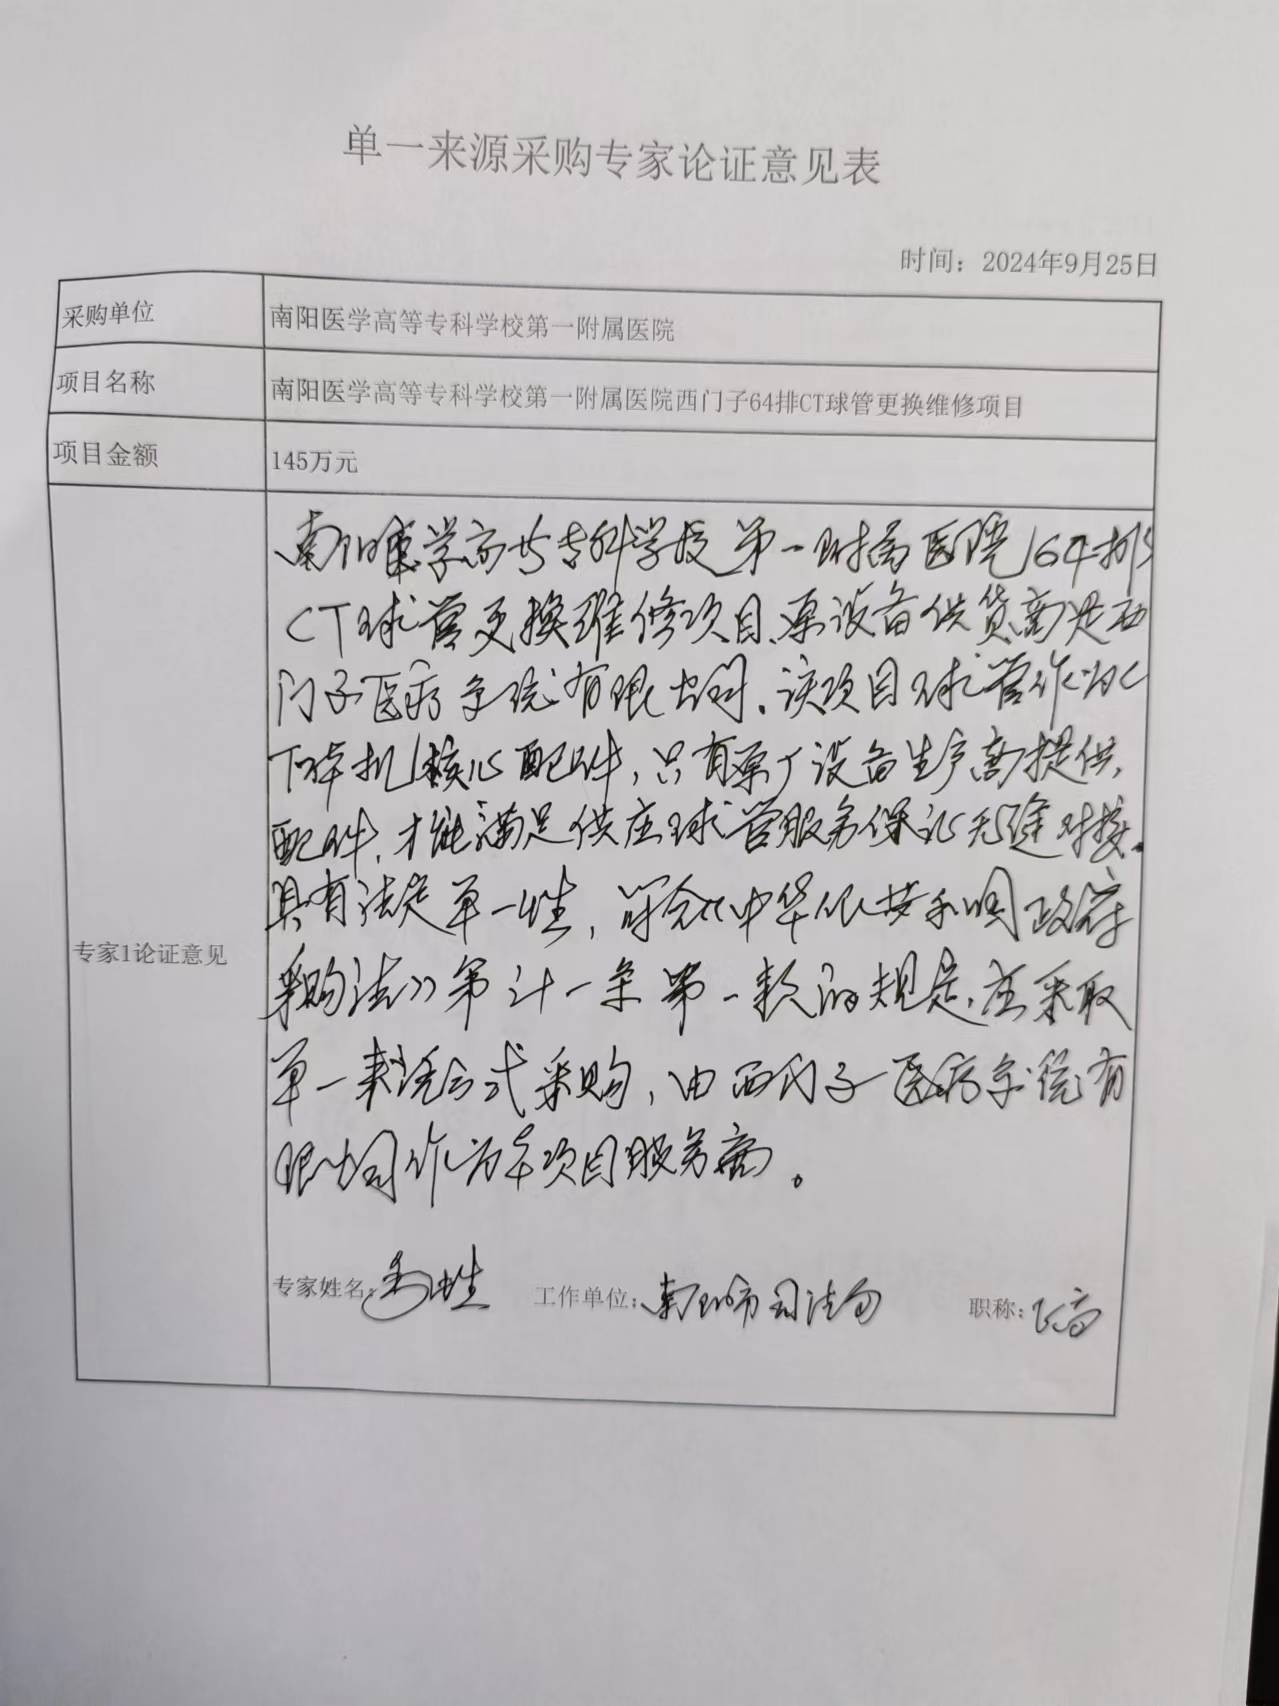 单一来源采购专家论证意见表
时间：2024年9月25日
采购单位
南阳医学高等专科学校第一附属医院
项目名称
南阳医学高等专科学校第一附属医院西门子64排CT球管更换维修项目
项目金额
145万元
专家1论证意见
南阳医学高等专科学校第一附属医院64排
CT球管更换维修项目、原设备供货商是西
门子医疗系统有限公司、该项目球管作为C
T球机核心配件，只有原厂设备生产商提供，
配件，才能满足供应球管服务保证无缝对接。
具有法定单一性，符合《中华人民共和国政府
采购法》第卅一条第一款的规定，应采取
单一来源方式采购，由西门子医疗系统有
限公司作为本项目服务商。
专家姓名：
工作单位：南阳市司法局
职称：